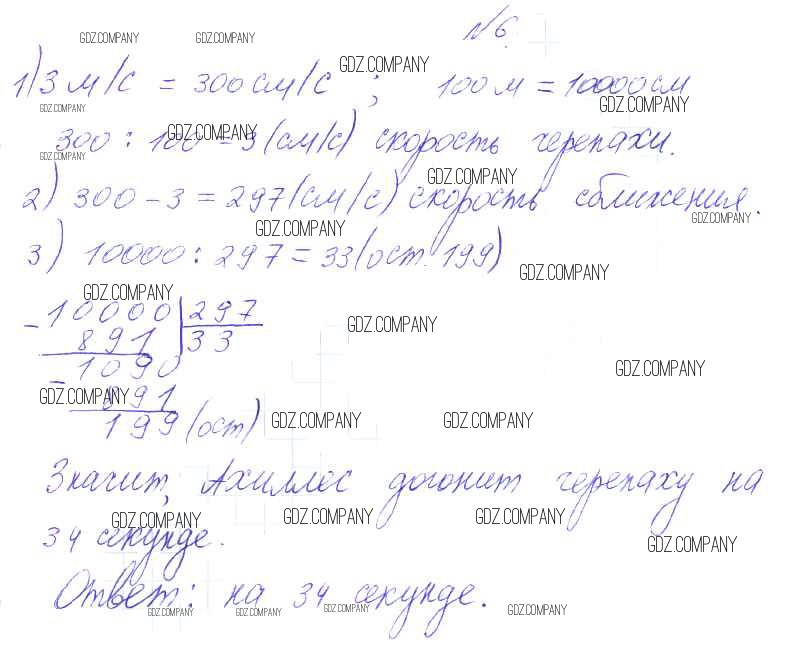 №6.
GDZ.COMPANY GDZ.COMPANY
1) 3 м/с = 300 см/с ; 100 м = 10000 см
GDZ.COMPANY
GDZ.COMPANY GDZ.COMPANY
300 : 100 = 3 (см/с) скорость черепахи.
GDZ.COMPANY
GDZ.COMPANY GDZ.COMPANY
2) 300 - 3 = 297 (см/с) скорость сближения.
GDZ.COMPANY GDZ.COMPANY
3) 10000 : 297 = 33 (ост. 199)
GDZ.COMPANY
GDZ.COMPANY
- 10000 | 297
GDZ.COMPANY
891 33
- 1090
GDZ.COMPANY
891
GDZ.COMPANY
199 (ост)
GDZ.COMPANY GDZ.COMPANY
Значит, Ахиллес догонит черепаху на
GDZ.COMPANY GDZ.COMPANY GDZ.COMPANY
34 секунде.
GDZ.COMPANY
Ответ: на 34 секунде.
GDZ.COMPANY GDZ.COMPANY GDZ.COMPANY GDZ.COMPANY